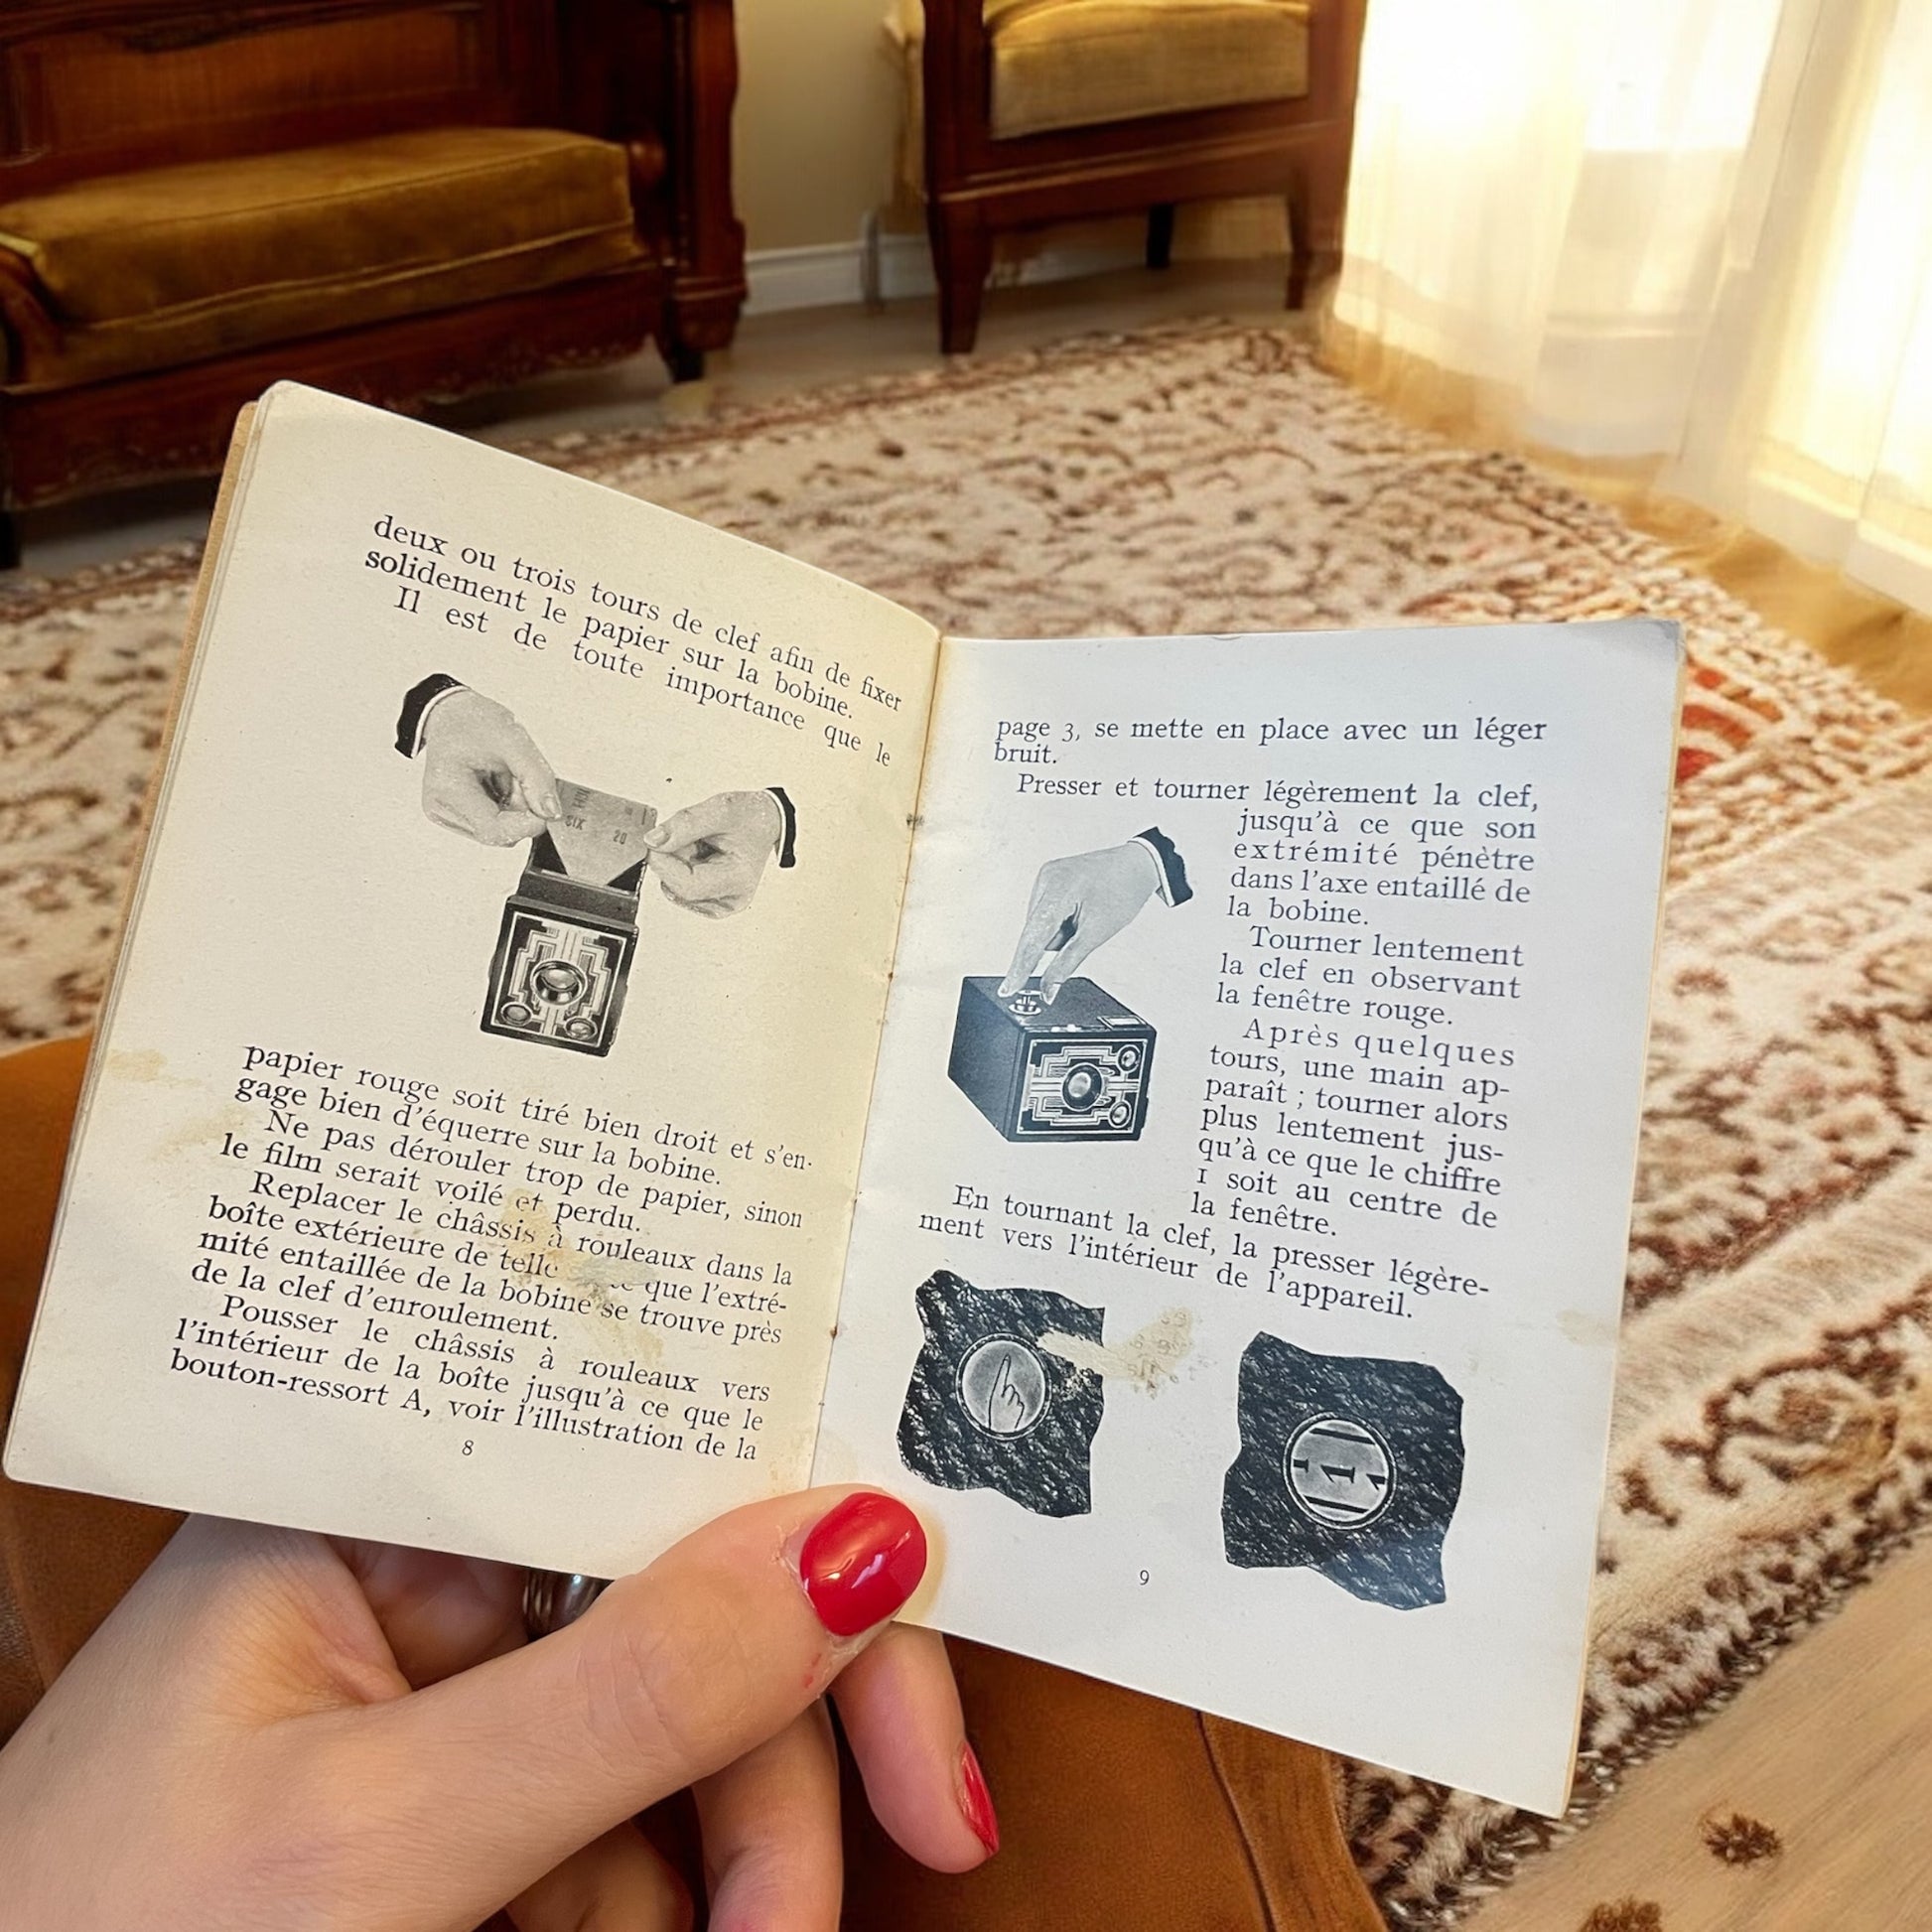 deux ou trois tours de clef afin de fixer
solidement le papier sur la bobine.
Il est de toute importance que le
SIX 20
papier rouge soit tiré bien droit et s'en-
gage bien d'équerre sur la bobine.
Ne pas dérouler trop de papier, sinon
le film serait voilé et perdu.
Replacer le châssis à rouleaux dans la
boîte extérieure de telle que l'extré-
mité entaillée de la bobine se trouve près
de la clef d'enroulement.
Pousser le châssis à rouleaux vers
l'intérieur de la boîte jusqu'à ce que le
bouton-ressort A, voir l'illustration de la
8
page 3, se mette en place avec un léger
bruit.
Presser et tourner légèrement la clef,
jusqu'à ce que son
extrémité pénètre
dans l'axe entaillé de
la bobine.
Tourner lentement
la clef en observant
la fenêtre rouge.
Après quelques
tours, une main ap-
paraît ; tourner alors
plus lentement jus-
qu'à ce que le chiffre
I soit au centre de
la fenêtre.
En tournant la clef, la presser légère-
ment vers l'intérieur de l'appareil.
1
9